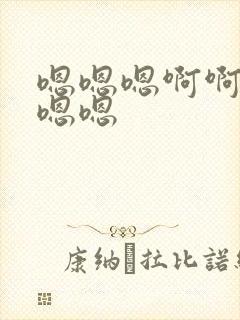 嗯嗯嗯啊啊
嗯嗯
康纳�拉比諾